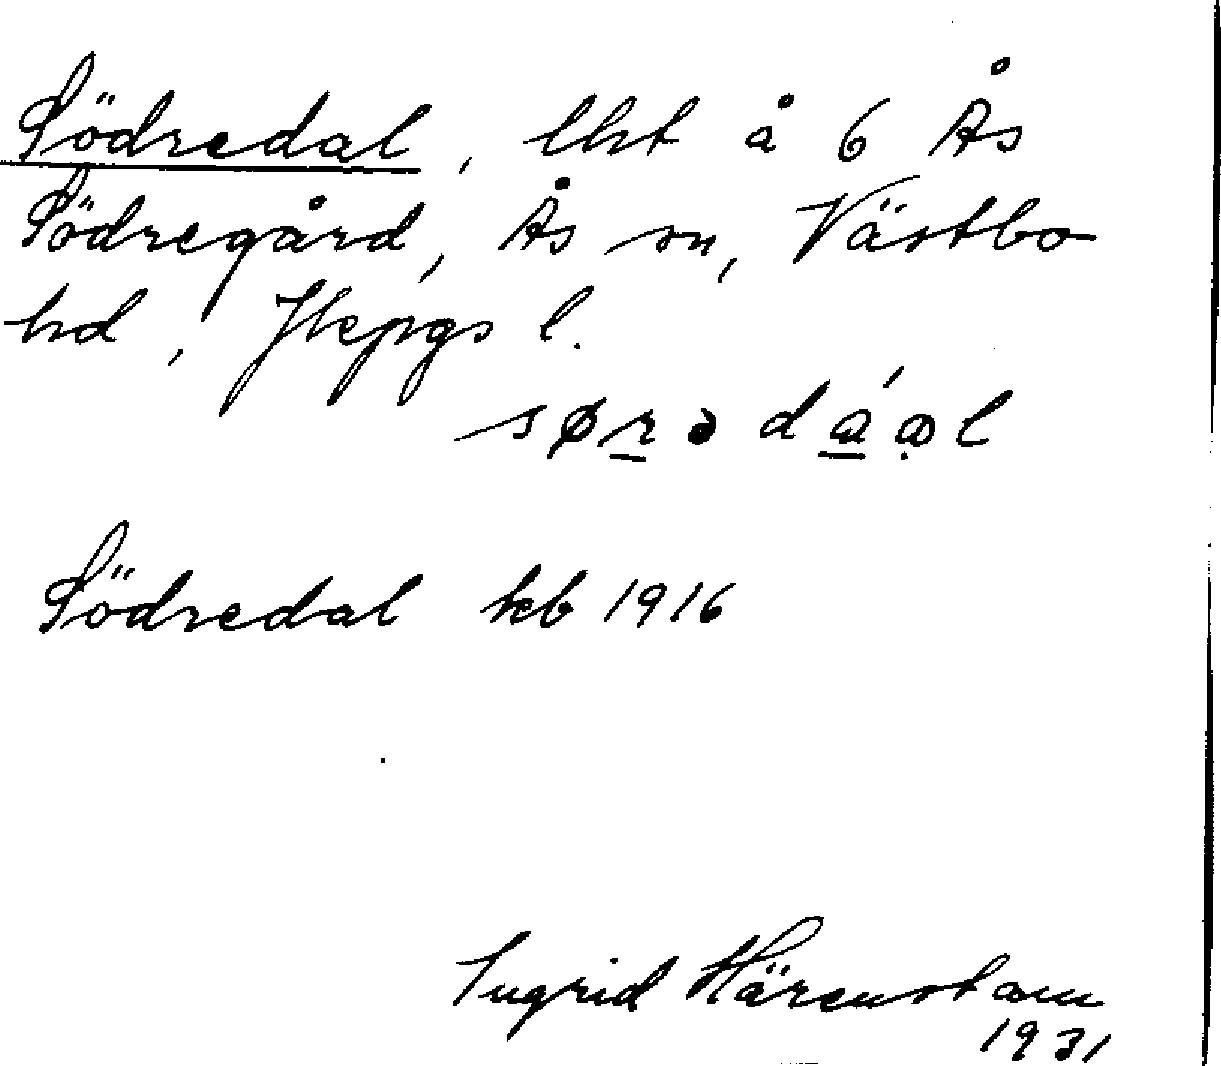 Södredal, lht å 6 Ås
Södregård, Ås sn, Västbo
hd, Jkpgs l.
sørədáɑl
Södredal kb 1916
Ingrid Härenstam
1931